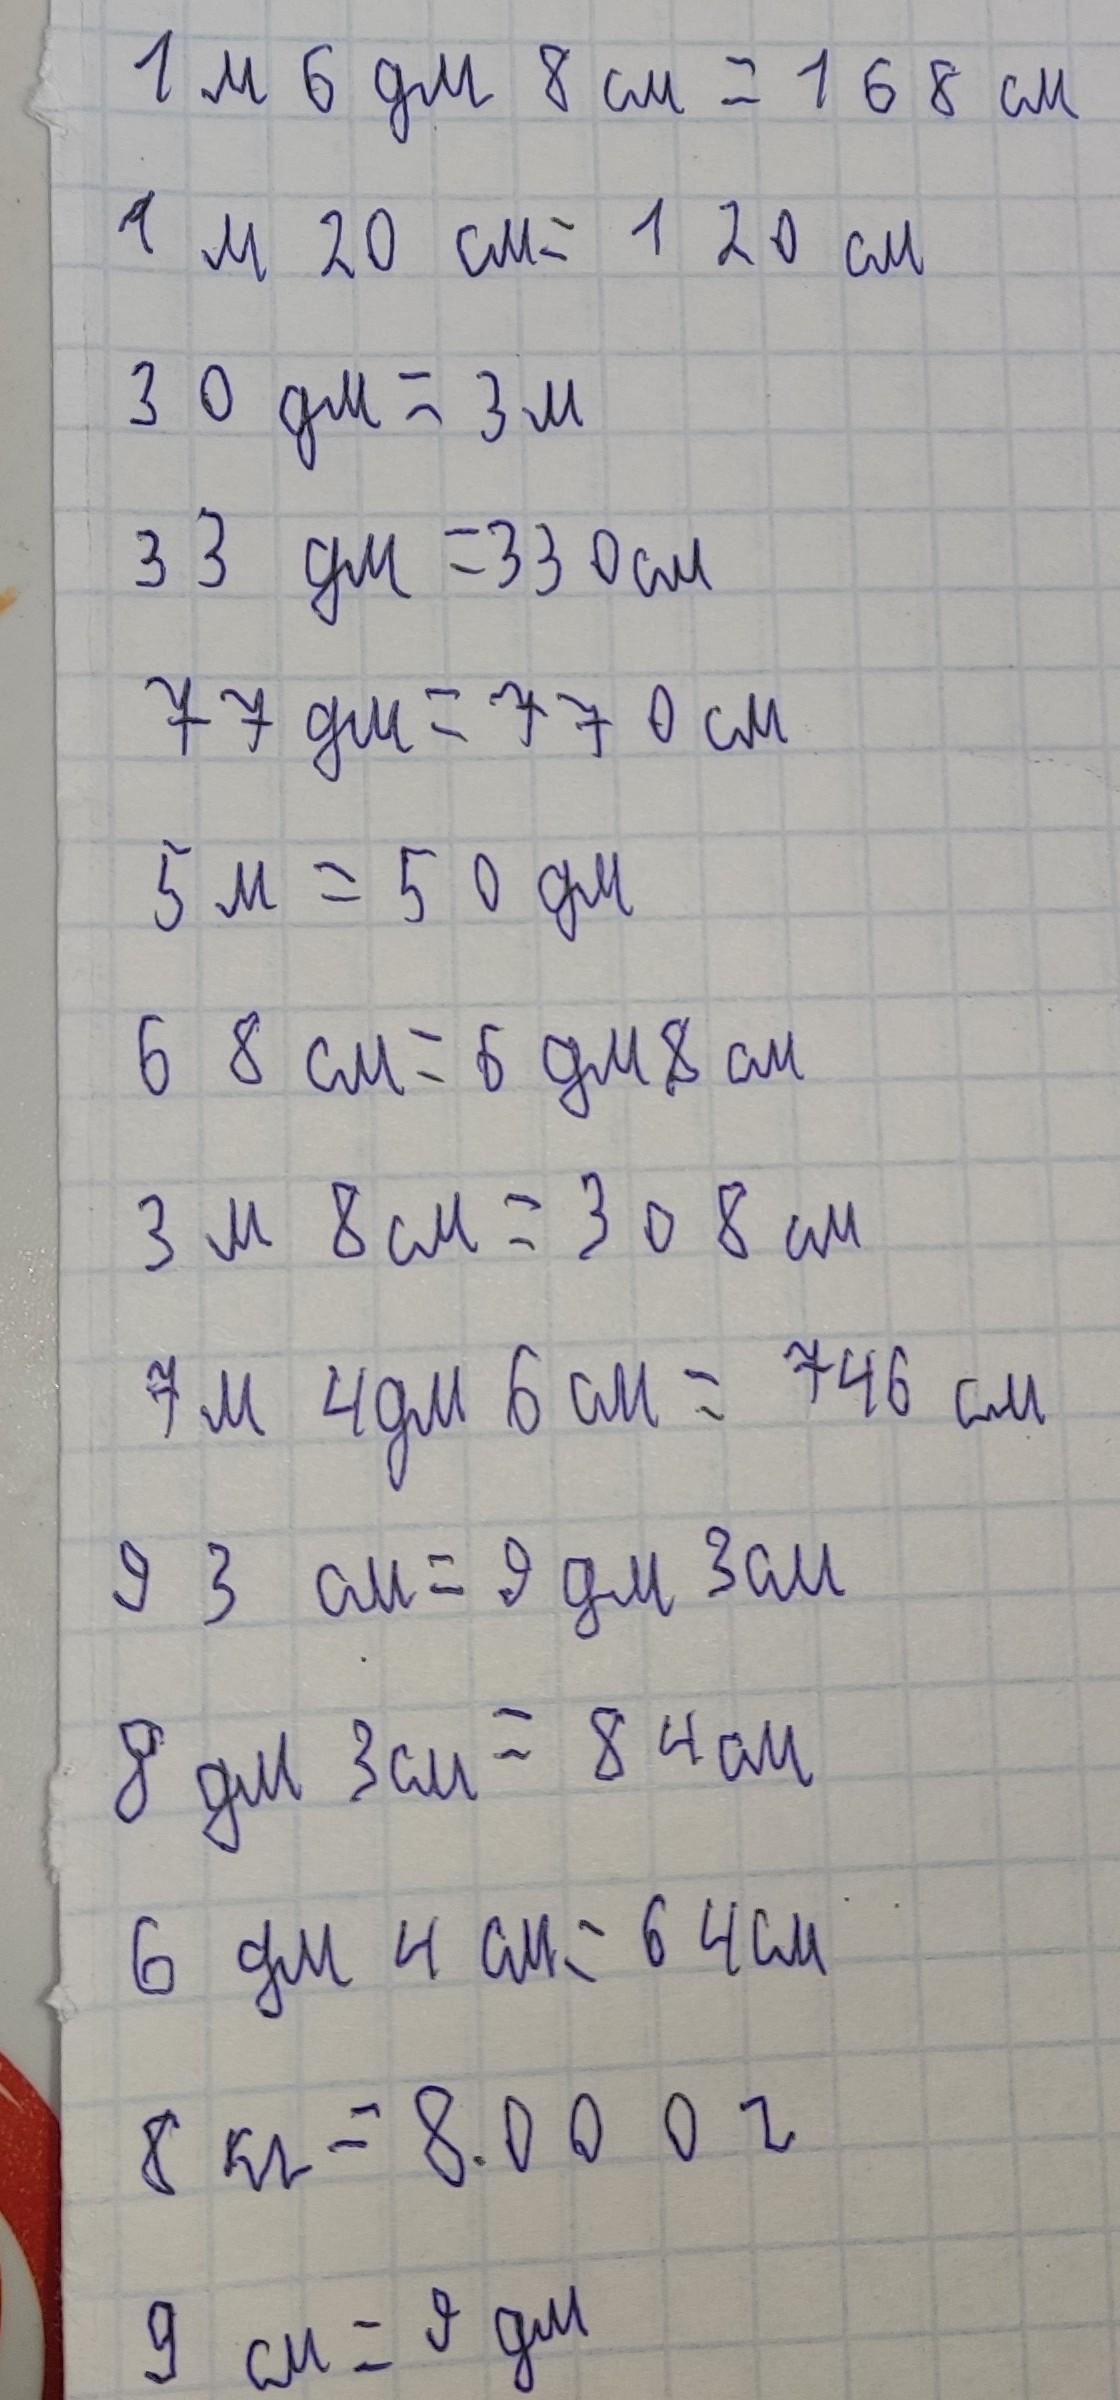 1 м 6 дм 8 см = 168 см
1 м 20 см = 120 см
30 дм = 3 м
33 дм = 330 см
77 дм = 770 см
5 м = 50 дм
68 см = 6 дм 8 см
3 м 8 см = 308 см
7 м 4 дм 6 см = 746 см
93 см = 9 дм 3 см
8 дм 3 см = 84 см
6 дм 4 см = 64 см
8 кг = 8.000 г
9 см = 9 дм